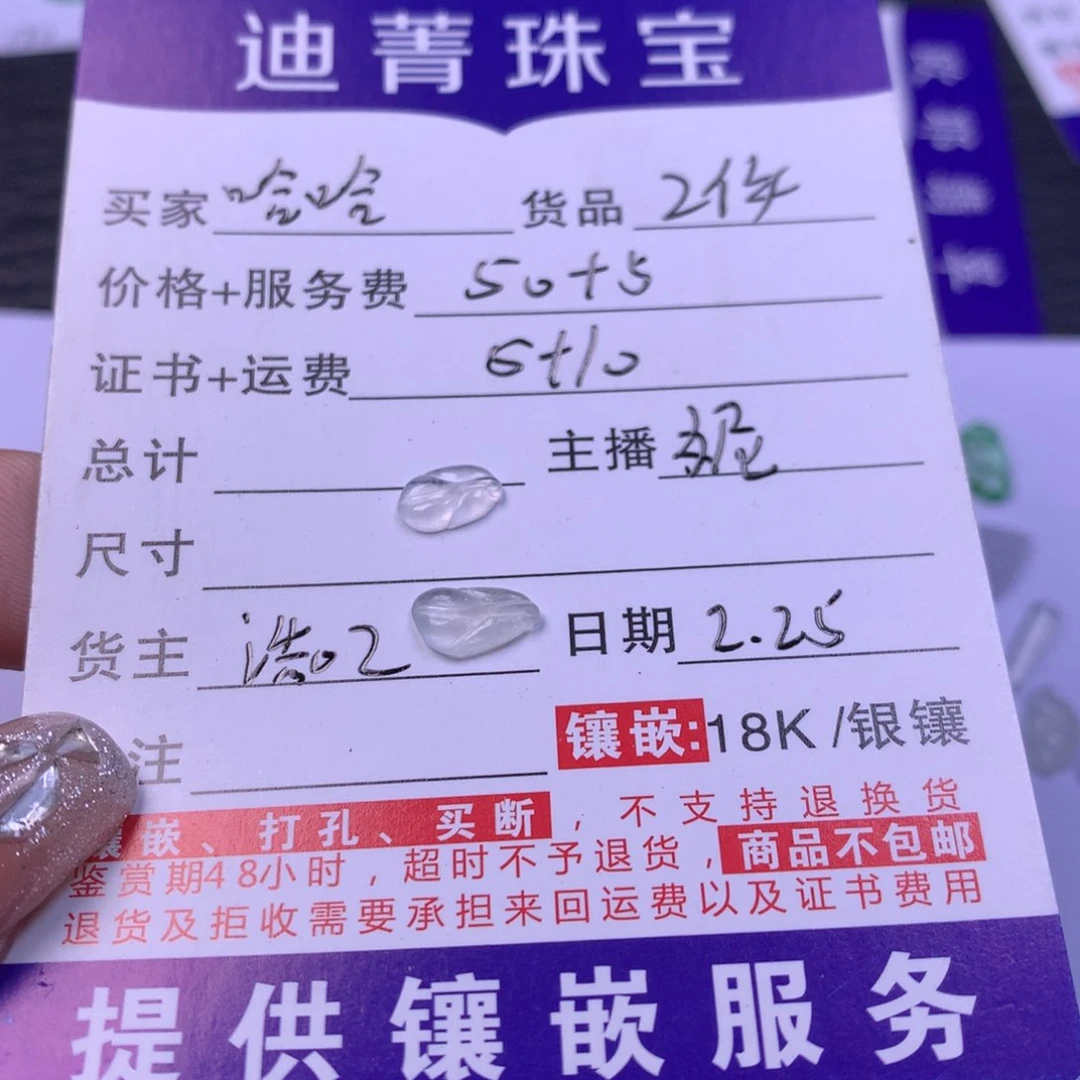 迪菁珠宝
买家 哈哈 货品 2件
价格+服务费 50+5
证书+运费 6+10
总计 主播
尺寸
货主 浩02 日期 2.25
注 镶嵌:18K/银镶
镶嵌、打孔、买断,不支持退换货
鉴赏期48小时,超时不予退货,商品不包邮
退货及拒收需要承担来回运费以及证书费用
提供镶嵌服务